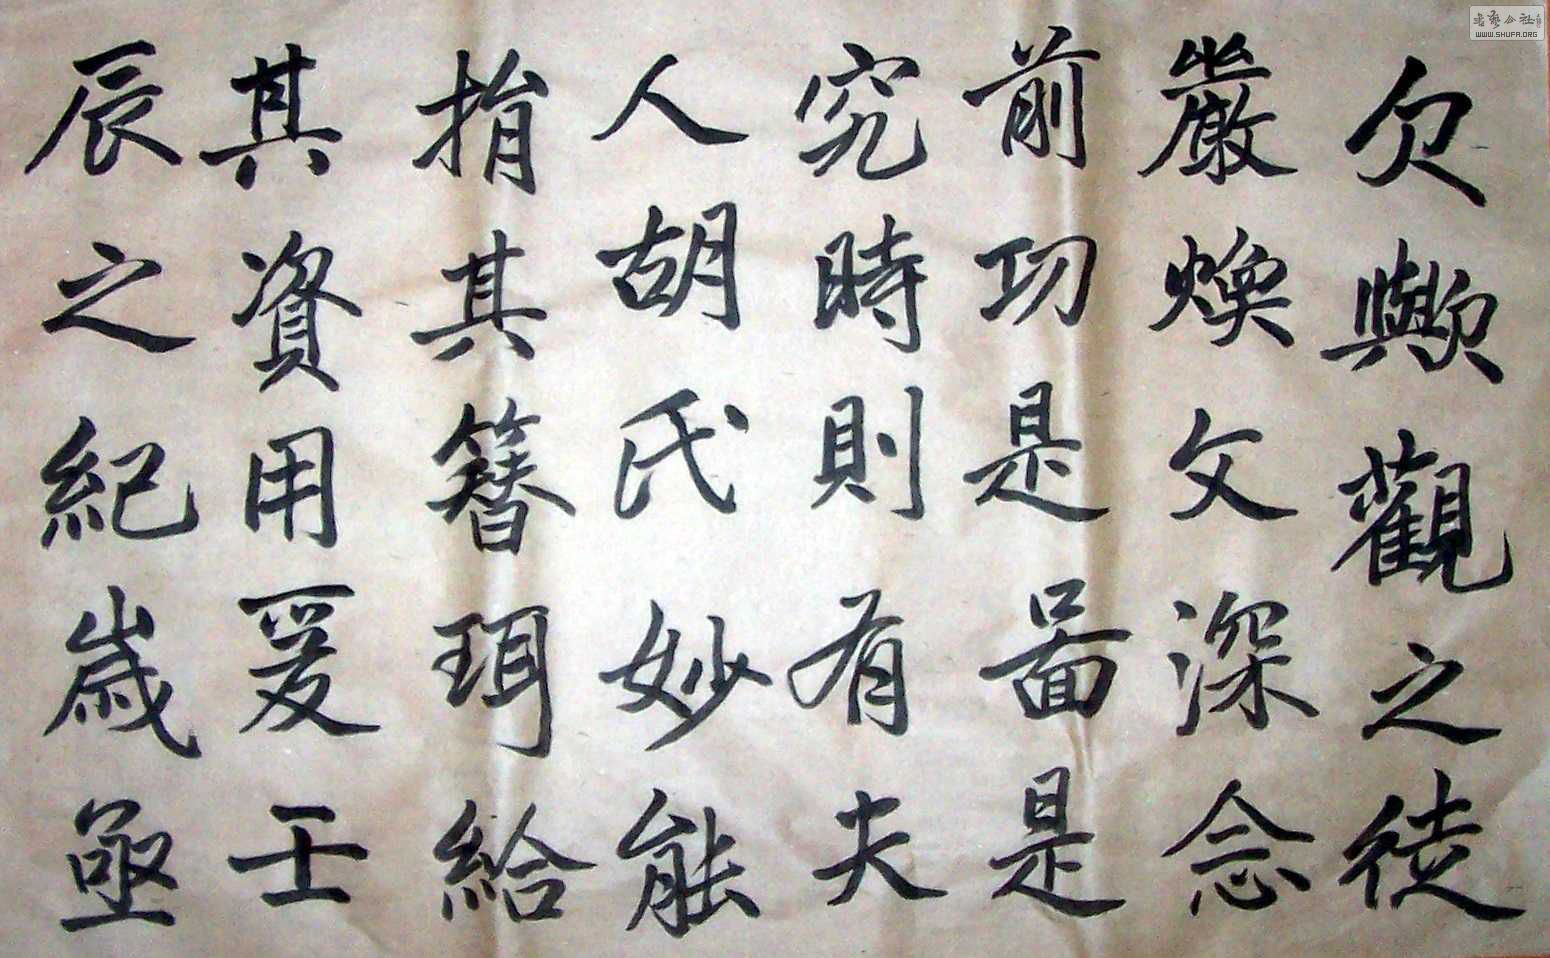 欠歟觀之徒
嚴煥文深念
前功是啚是
究時則有夫
人胡氏妙能
捐其簮珥給
其資用爰壬
辰之紀歲亟
书艺公社
WWW.SHUFA.ORG